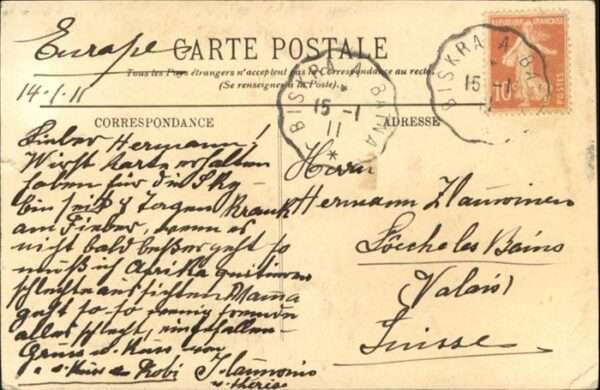 Europe
14.1.11
CARTE POSTALE
Tous les Pays étrangers n'acceptent pas la Correspondance au recto.
(Se renseigner à la Poste).
CORRESPONDANCE
ADRESSE
BISKRA A BATNA
15 -1
11
BISKRA A BA
15 -1
RÉPUBLIQUE FRANÇAISE
10
POSTES
Lieber Hermann!
Wirst Karte erhalten
haben für die
bin seit 8 Tagen krank
am Fieber, wenn es
nicht bald beßer geht so
muß ich Afrika quitieren
schlechte aussichten Mama
geht so so wenig fremde
alles schlecht, eingefallen
Gruss u. Kuss von
Robi
Herrn
Hermann
Löeche les Bains
(Valais)
Suisse